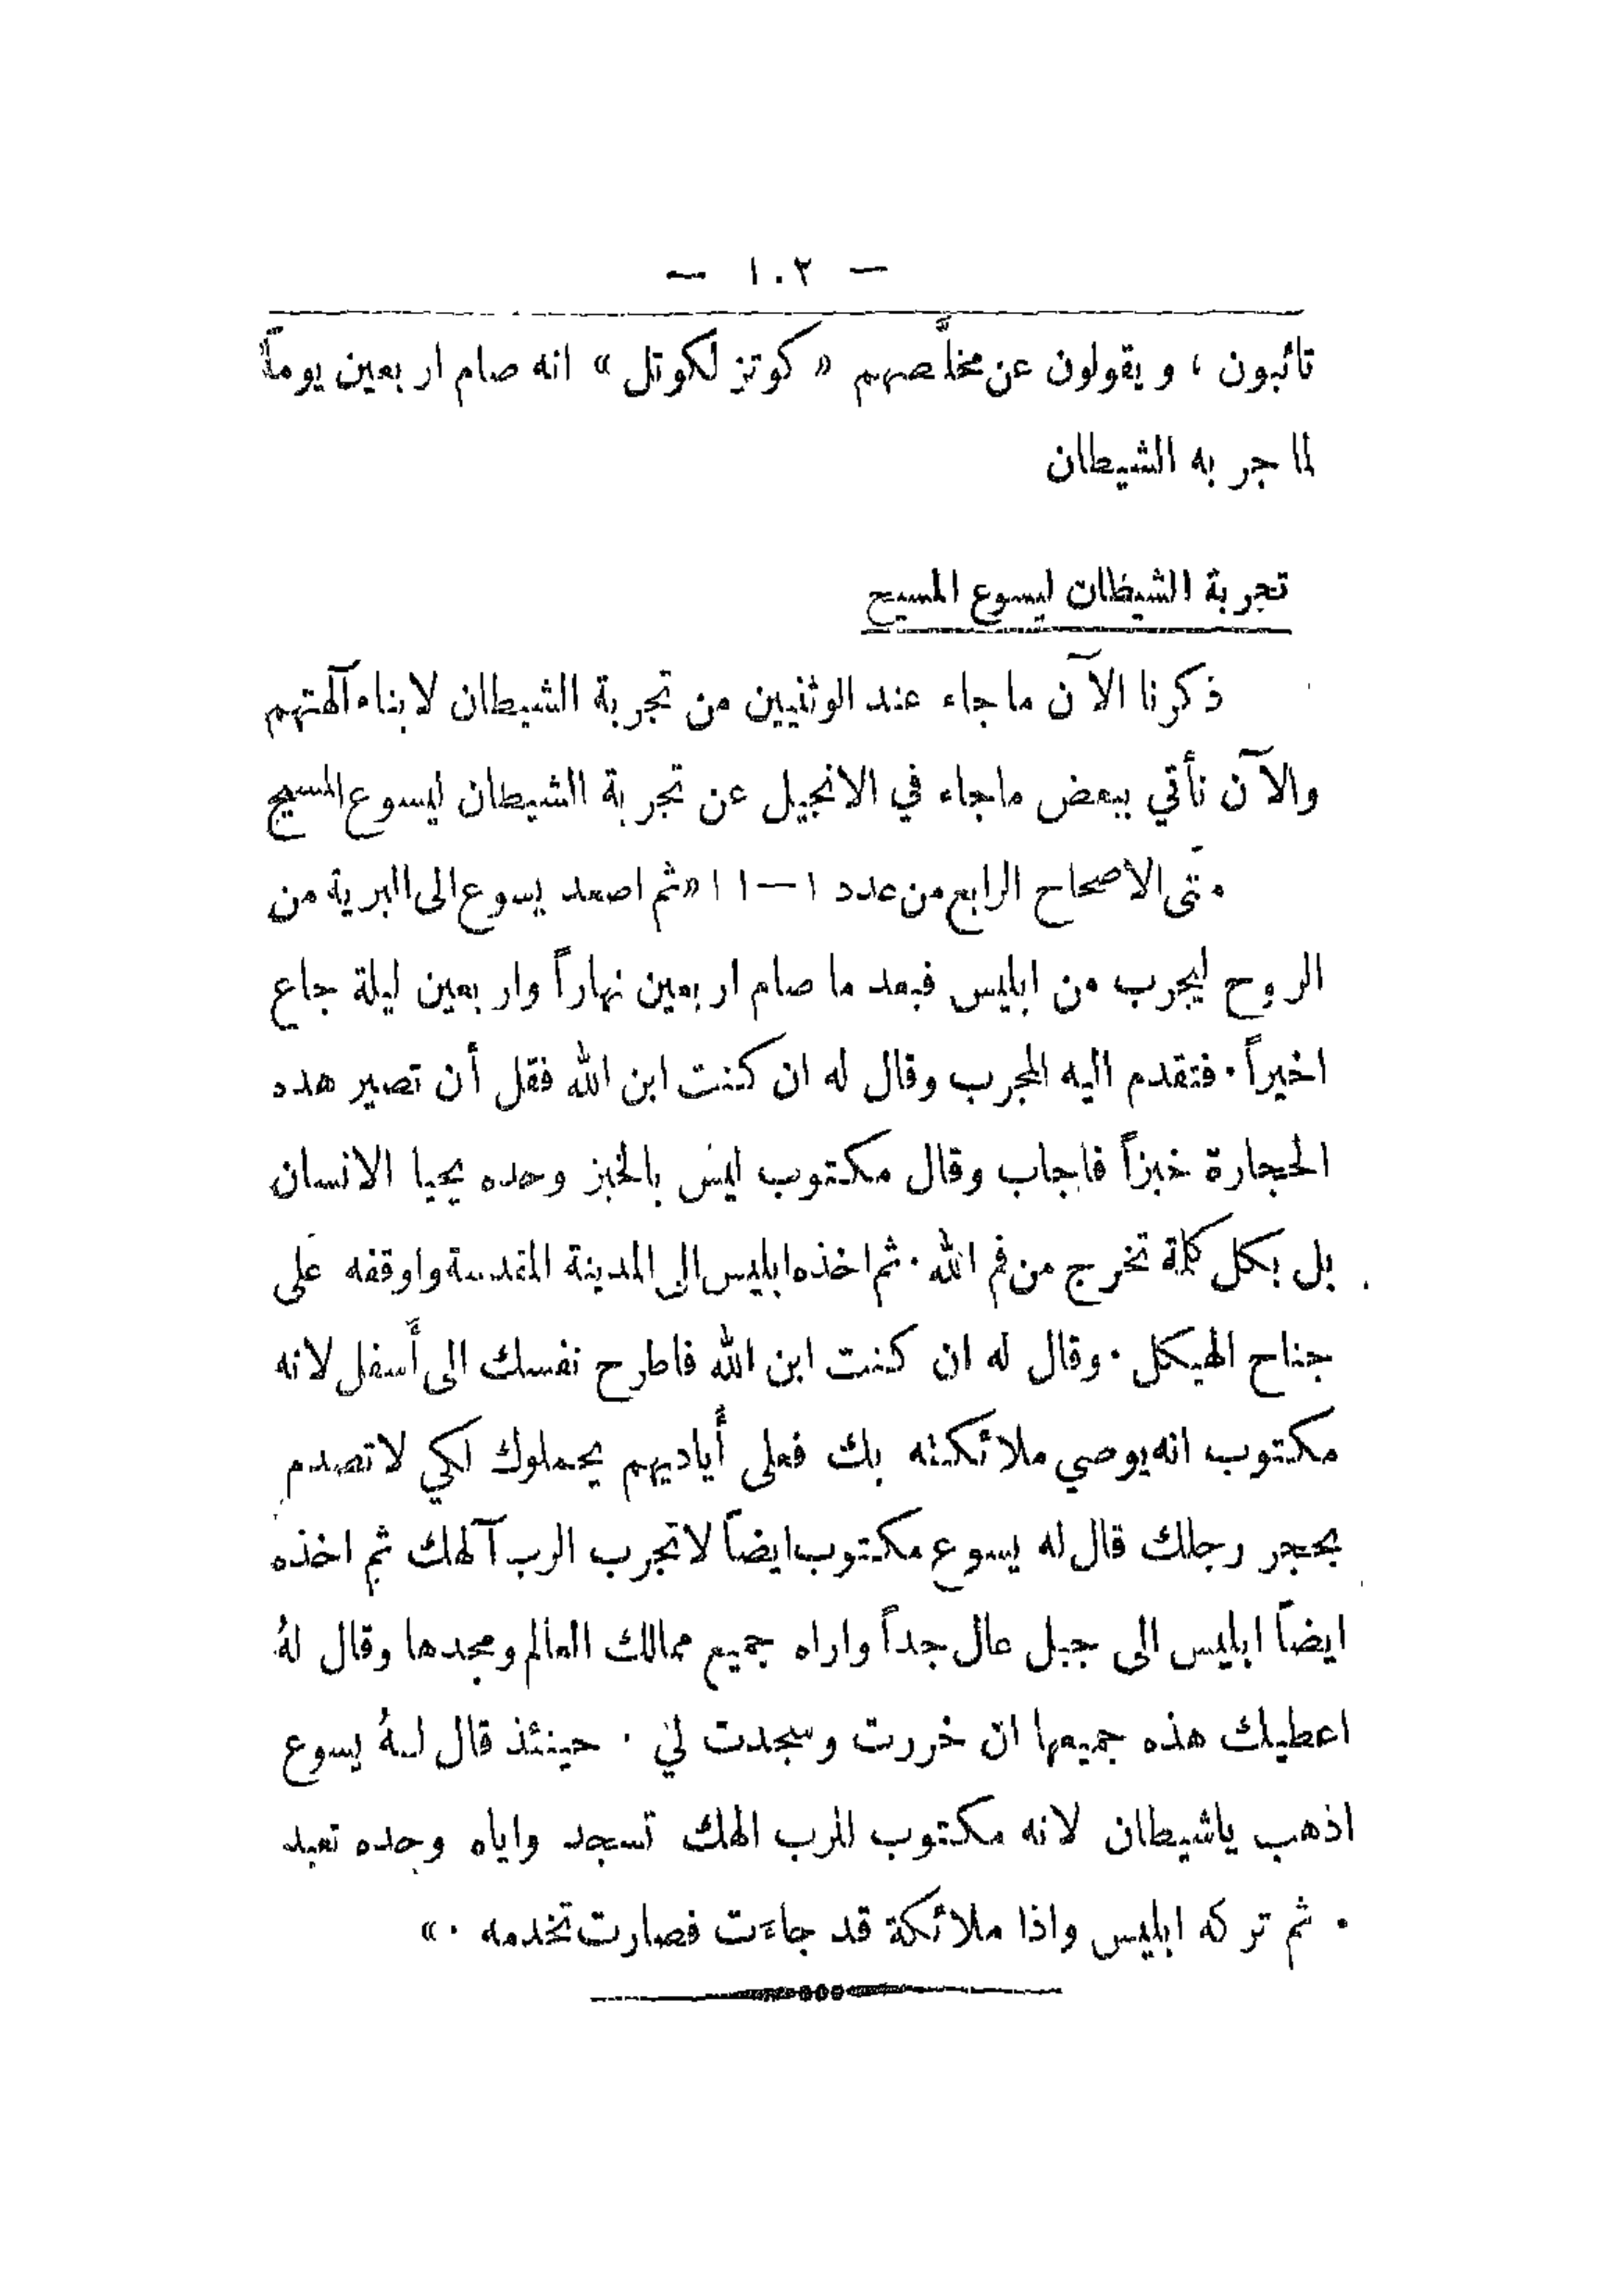 — ١٠٢ —
تائبون ، ويقولون عن مخلّصهم « كوتز لكوتل » انه صام اربعين يوماً
لما جربه الشيطان
تجربة الشيطان ليسوع المسيح
ذكرنا الآن ما جاء عند الوثنيين من تجربة الشيطان لابناء آلهتهم
والآن نأتي ببعض ماجاء في الانجيل عن تجربة الشيطان ليسوع المسيح
متى الاصحاح الرابع من عدد ١—١١ «ثم اصعد يسوع الى البرية من
الروح ليجرب من ابليس فبعد ما صام اربعين نهاراً واربعين ليلة جاع
اخيراً . فتقدم اليه المجرب وقال له ان كنت ابن الله فقل أن تصير هده
الحجارة خبزاً فاجاب وقال مكتوب ليس بالخبز وحده يحيا الانسان
بل بكل كلمة تخرج من فم الله . ثم اخذه ابليس الى المدينة المقدسة واوقفه على
جناح الهيكل . وقال له ان كنت ابن الله فاطرح نفسك الى أسفل لانه
مكتوب انه يوصي ملائكته بك فعلى أياديهم يحملوك لكي لا تصدم
بحجر رجلك قال له يسوع مكتوب ايضاً لا تجرب الرب آلهك ثم اخذه
ايضاً ابليس الى جبل عال جداً واراه جميع ممالك العالم ومجدها وقال لهُ
اعطيك هذه جميعها ان خررت وسجدت لي . حينئذ قال لـهُ يسوع
اذهب ياشيطان لانه مكتوب للرب الهك تسجد واياه وحده تعبد
. ثم تركه ابليس واذا ملائكة قد جاءت فصارت تخدمه . »